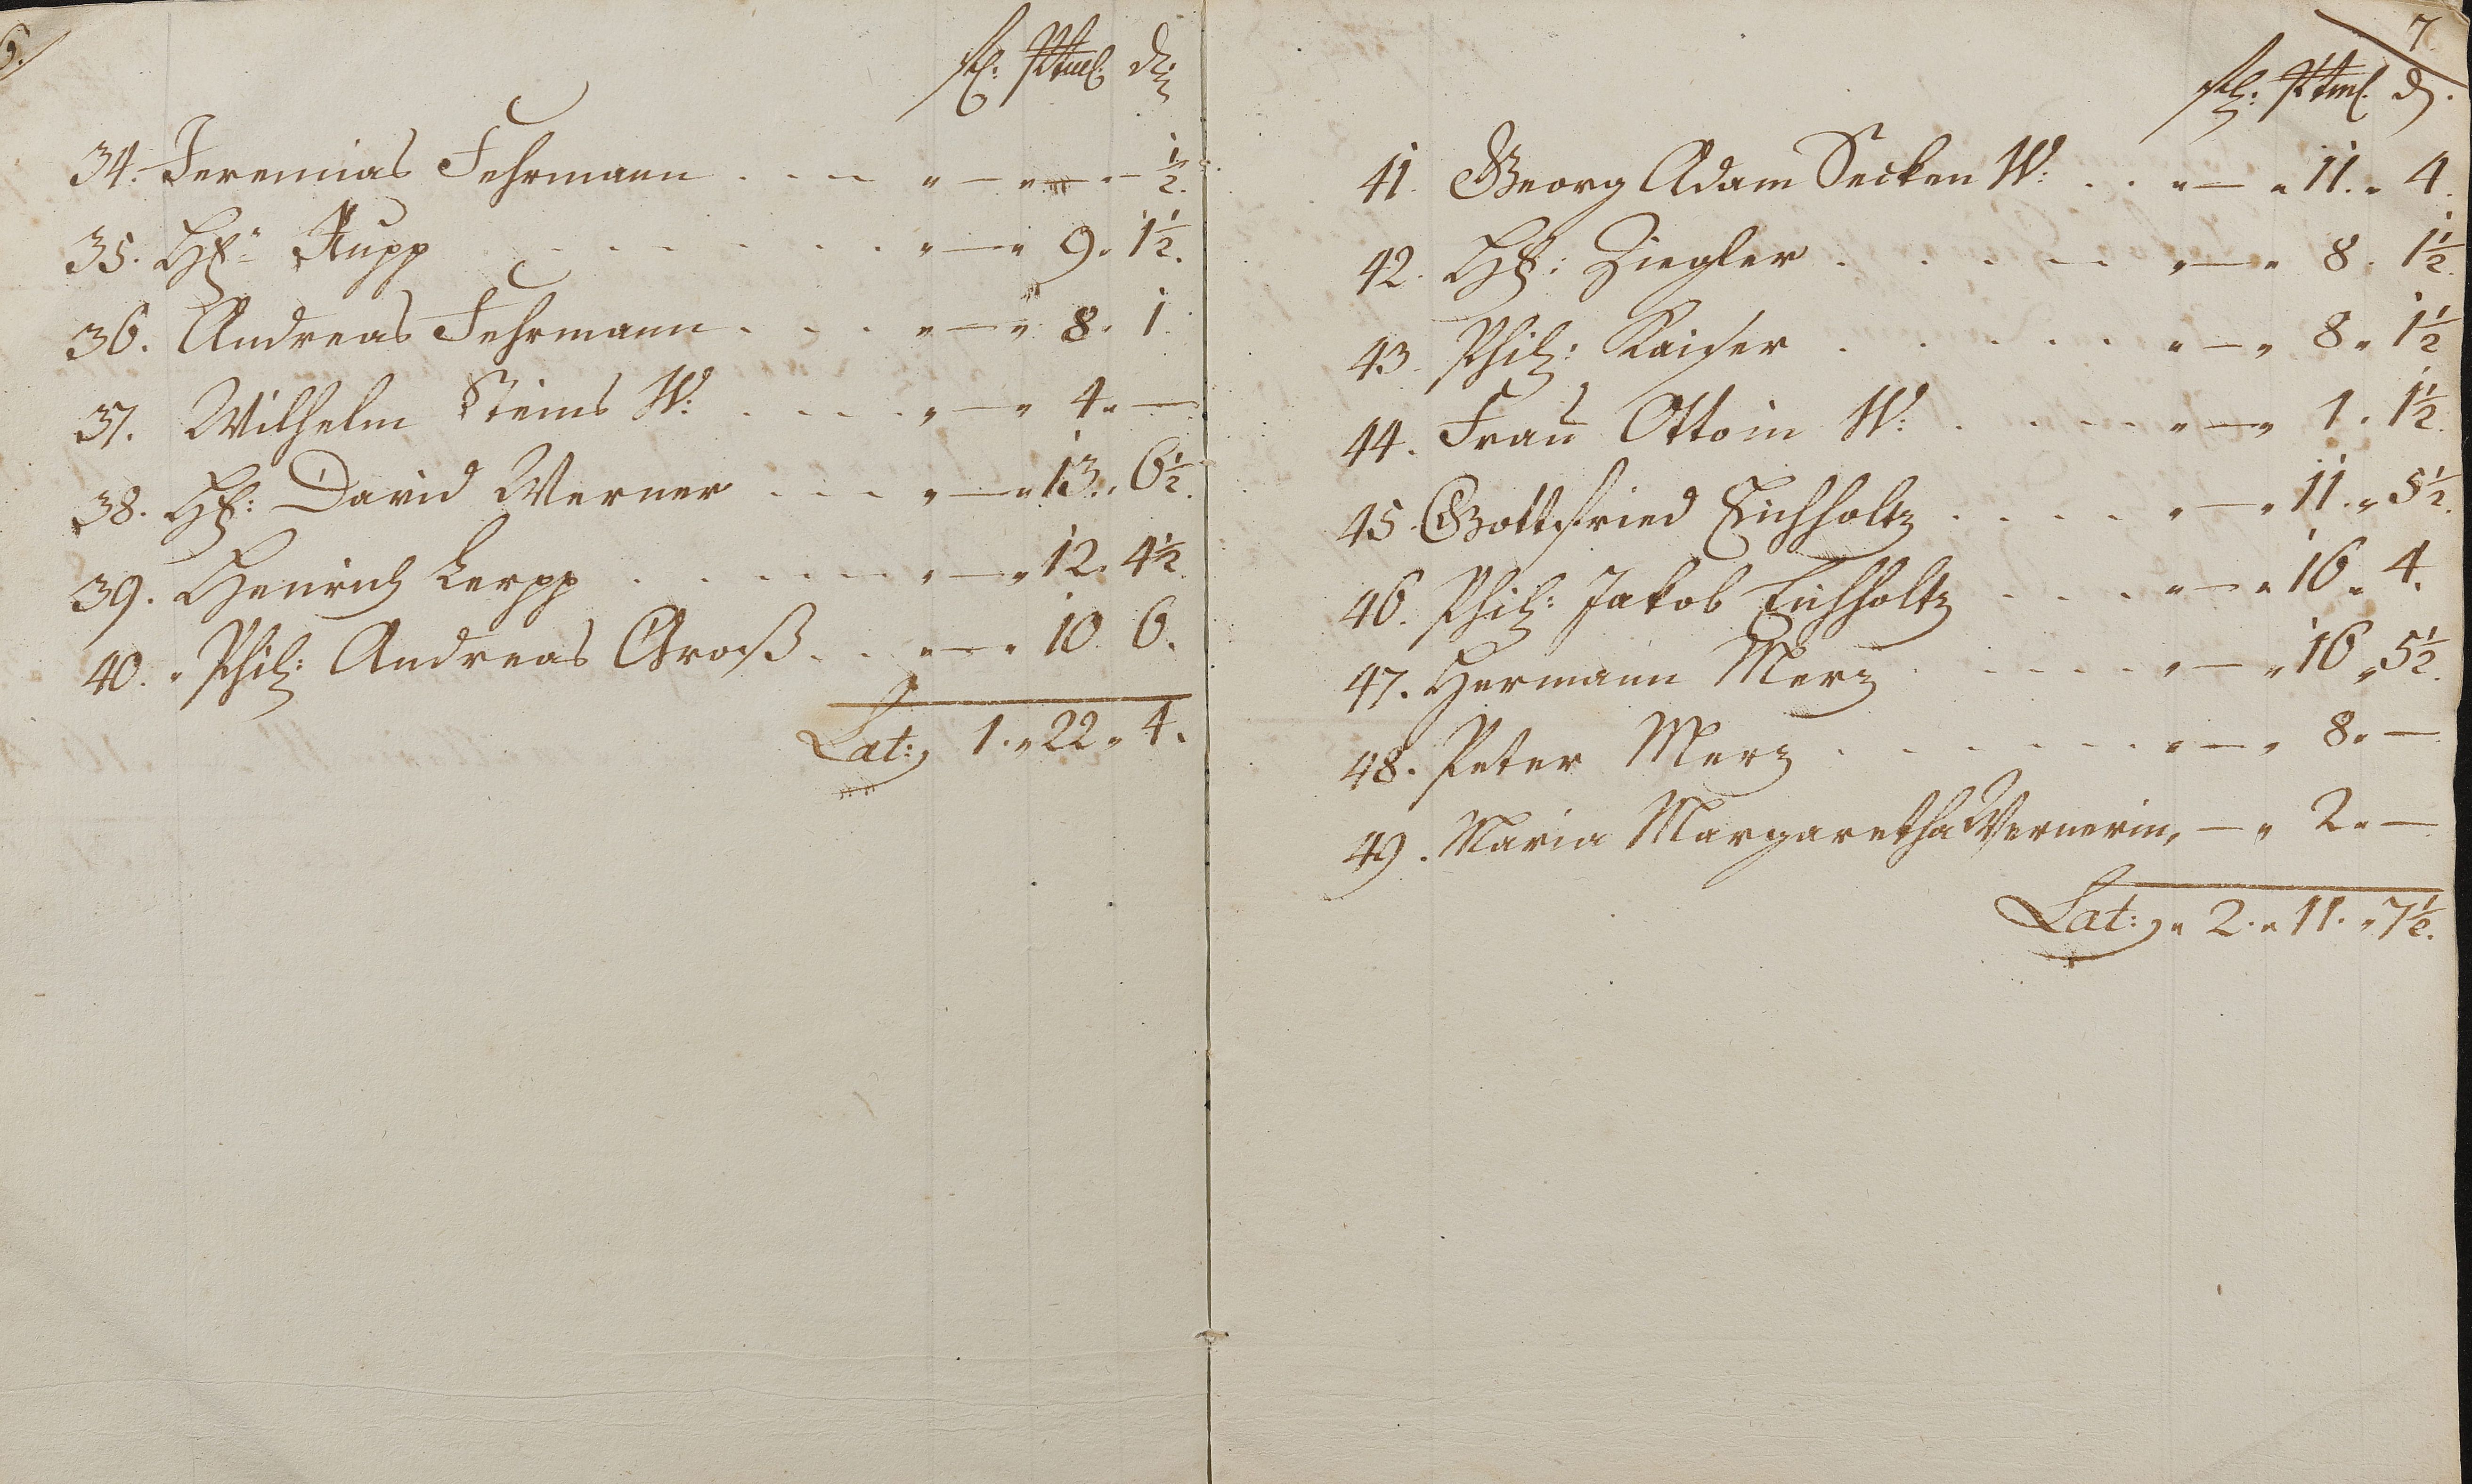 6.
fl: Albus. d:
34. Jeremias Fehrmann . . . " — " — " — ½.
35. Hr: Rupp . . . . . . " — " 9. 1½.
36. Andreas Fehrmann . . . " — " 8. 1.
37. Wilhelm Steins W: . . . . " — " 4. —
38. Hr: David Werner . . . " — " 13. 6½.
39. Henrich Lerpp . . . . . " — " 12. 4½.
40. Phil: Andreas Groß . . " — " 10. 6.
Lat: 1. " 22 " 4.
7
fl: Albus. d.
41. Georg Adam Secken W: . . " — " 11. " 4.
42. Hr: Ziegler . . . . . " — " 8. 1½.
43. Phil: Kaiser . . . . . " — " 8 " 1½
44. Frau Ottoin W: . . . . " — " 1. 1½.
45. Gottfried Eichholtz . . . . " — " 11. " 5½.
46. Phil: Jakob Eichholtz . . . " — " 16 " 4.
47. Hermann Merz . . . . . " — " 16 " 5½.
48. Peter Merz . . . . . . " — " 8. —
49. Maria Margaretha Wernerin, — " 2. —
Lat: " 2. " 11. " 7½.